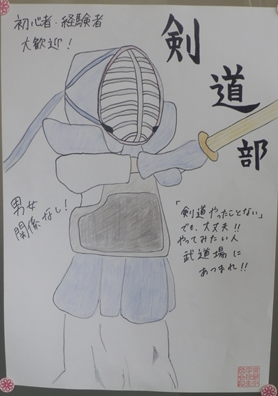 初心者・経験者
大歓迎！
剣道部
男女
関係なし！
「剣道やったことない」
でも、大丈夫！！
やってみたい人
武道場に
あつまれ！！